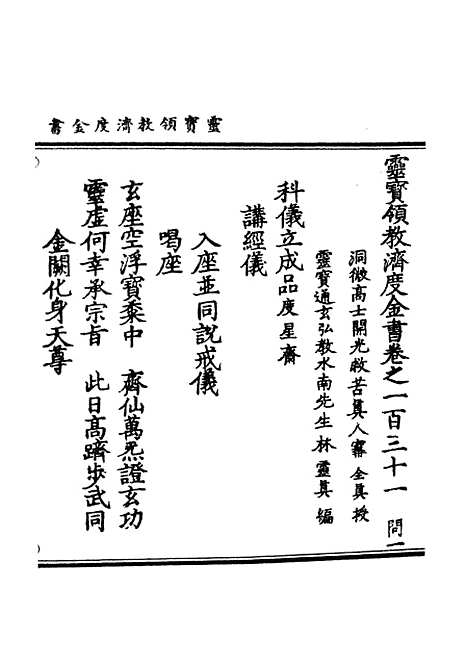 靈寶領教濟度金書
靈寶領教濟度金書卷之一百三十一 問一
洞微高士開光救苦眞人甯全眞授
靈寶通玄弘教水南先生林靈眞編
科儀立成品度星齋
講經儀
入座並同說戒儀
唱座
玄座空浮寶乘中 齊仙萬炁證玄功
靈虛何幸承宗旨 此日高躋步武同
金闕化身天尊